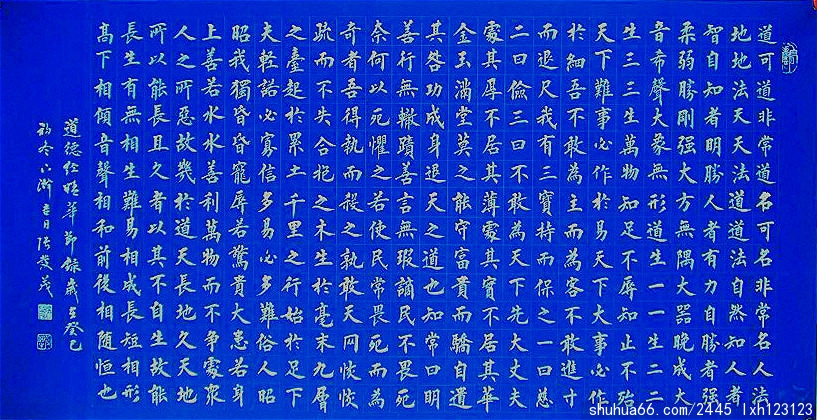 道可道非常道名可名非常名人法
地地法天天法道道法自然知人者
智自知者明勝人者有力自勝者强
柔弱勝剛强大方無隅大器晚成大
音希聲大象無形道生一一生二二
生三三生萬物知足不辱知止不殆
天下難事必作於易天下大事必作
於細吾不敢為主而為客不敢進寸
而退尺我有三寶持而保之一曰慈
二曰儉三曰不敢為天下先大丈夫
處其厚不居其薄處其實不居其華
金玉滿堂莫之能守富貴而驕自遺
其咎功成身退天之道也知常曰明
善行無轍蹟善言無瑕謫民不畏死
奈何以死懼之若使民常畏死而為
奇者吾得執而殺之孰敢天網恢恢
疏而不失合抱之木生於毫末九層
之臺起於累土千里之行始於足下
夫輕諾必寡信多易必多難俗人昭
昭我獨昏昏寵辱若驚貴大患若身
上善若水水善利萬物而不爭處衆
人之所惡故幾於道天長地久天地
所以能長且久者以其不自生故能
長生有無相生難易相成長短相形
高下相傾音聲相和前後相隨恒也
道德经精華節録歲在癸巳
shuhua66.com/2445_lxh123123